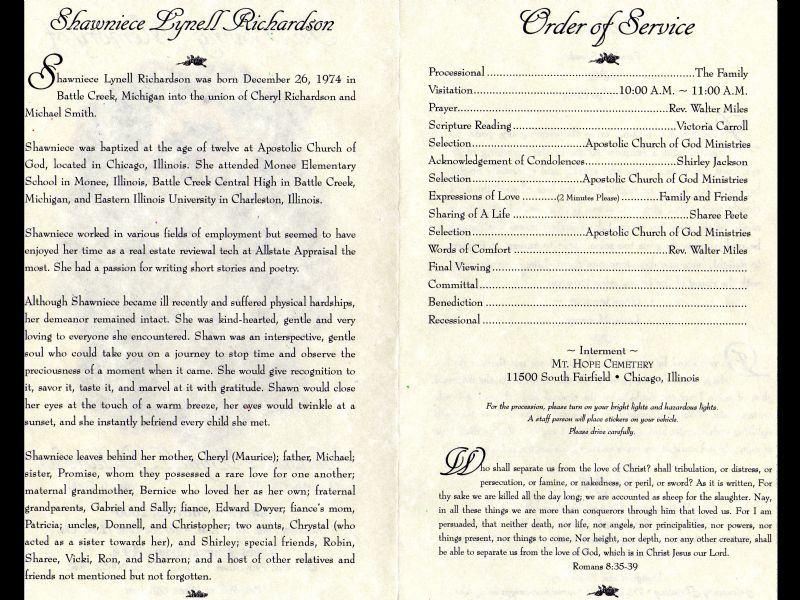 Shawniece Lynell Richardson
Shawniece Lynell Richardson was born December 26, 1974 in
Battle Creek, Michigan into the union of Cheryl Richardson and
Michael Smith.
Shawniece was baptized at the age of twelve at Apostolic Church of
God, located in Chicago, Illinois. She attended Monee Elementary
School in Monee, Illinois, Battle Creek Central High in Battle Creek,
Michigan, and Eastern Illinois University in Charleston, Illinois.
Shawniece worked in various fields of employment but seemed to have
enjoyed her time as a real estate reviewal tech at Allstate Appraisal the
most. She had a passion for writing short stories and poetry.
Although Shawniece became ill recently and suffered physical hardships,
her demeanor remained intact. She was kind-hearted, gentle and very
loving to everyone she encountered. Shawn was an interspective, gentle
soul who could take you on a journey to stop time and observe the
preciousness of a moment when it came. She would give recognition to
it, savor it, taste it, and marvel at it with gratitude. Shawn would close
her eyes at the touch of a warm breeze, her eyes would twinkle at a
sunset, and she instantly befriend every child she met.
Shawniece leaves behind her mother, Cheryl (Maurice); father, Michael;
sister, Promise, whom they possessed a rare love for one another;
maternal grandmother, Bernice who loved her as her own; fraternal
grandparents, Gabriel and Sally; fiance, Edward Dwyer; fiance's mom,
Patricia; uncles, Donnell, and Christopher; two aunts, Chrystal (who
acted as a sister towards her), and Shirley; special friends, Robin,
Sharee, Vicki, Ron, and Sharron; and a host of other relatives and
friends not mentioned but not forgotten.
Order of Service
Processional..........The Family
Visitation..........10:00 A.M. ~ 11:00 A.M.
Prayer..........Rev. Walter Miles
Scripture Reading..........Victoria Carroll
Selection..........Apostolic Church of God Ministries
Acknowledgement of Condolences..........Shirley Jackson
Selection..........Apostolic Church of God Ministries
Expressions of Love ..........(2 Minutes Please)..........Family and Friends
Sharing of A Life ..........Sharee Peete
Selection..........Apostolic Church of God Ministries
Words of Comfort ..........Rev. Walter Miles
Final Viewing..........
Committal..........
Benediction ..........
Recessional ..........
~ Interment ~
MT. HOPE CEMETERY
11500 South Fairfield • Chicago, Illinois
For the procession, please turn on your bright lights and hazardous lights.
A staff person will place stickers on your vehicle.
Please drive carefully.
Who shall separate us from the love of Christ? shall tribulation, or distress, or
persecution, or famine, or nakedness, or peril, or sword? As it is written, For
thy sake we are killed all the day long; we are accounted as sheep for the slaughter. Nay,
in all these things we are more than conquerors through him that loved us. For I am
persuaded, that neither death, nor life, nor angels, nor principalities, nor powers, nor
things present, nor things to come, Nor height, nor depth, nor any other creature, shall
be able to separate us from the love of God, which is in Christ Jesus our Lord.
Romans 8:35-39